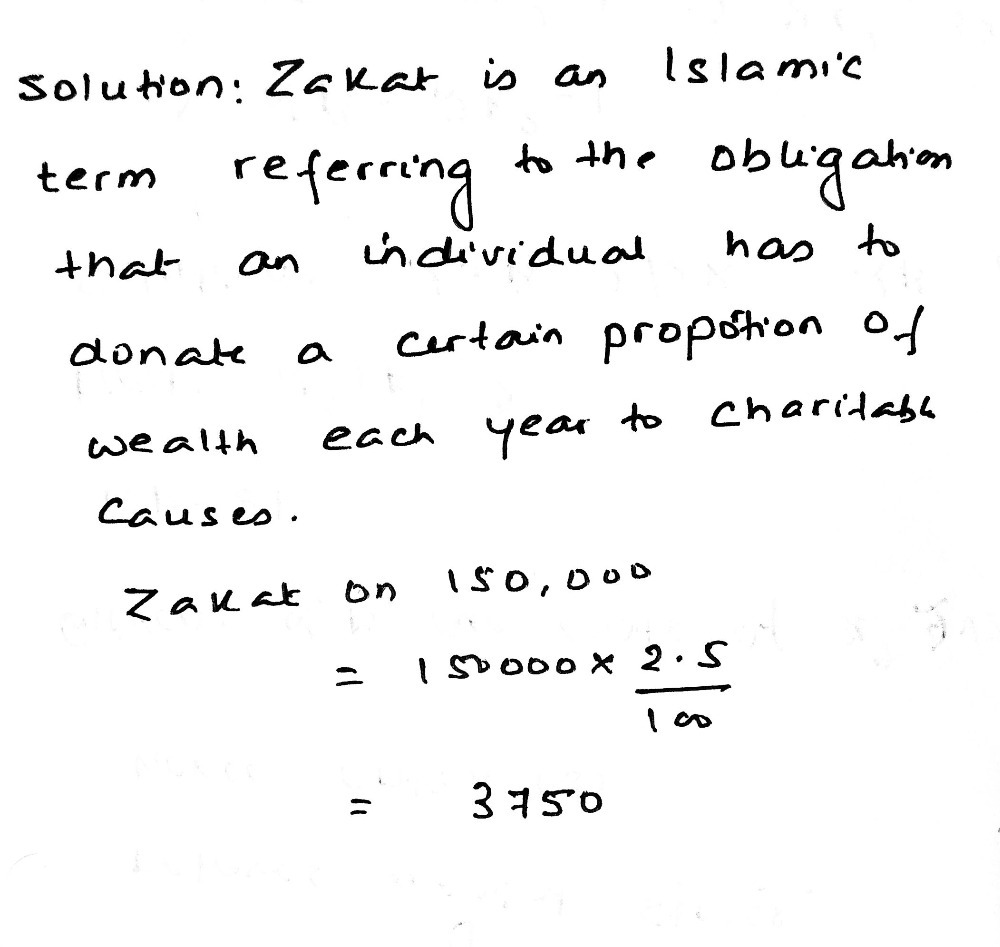 Solution: Zakat is an Islamic
term referring to the obligation
that an individual has to
donate a certain propotion of
wealth each year to charitable
causes.
Zakat on 150,000
= 150000 × 2.5/100
= 3750